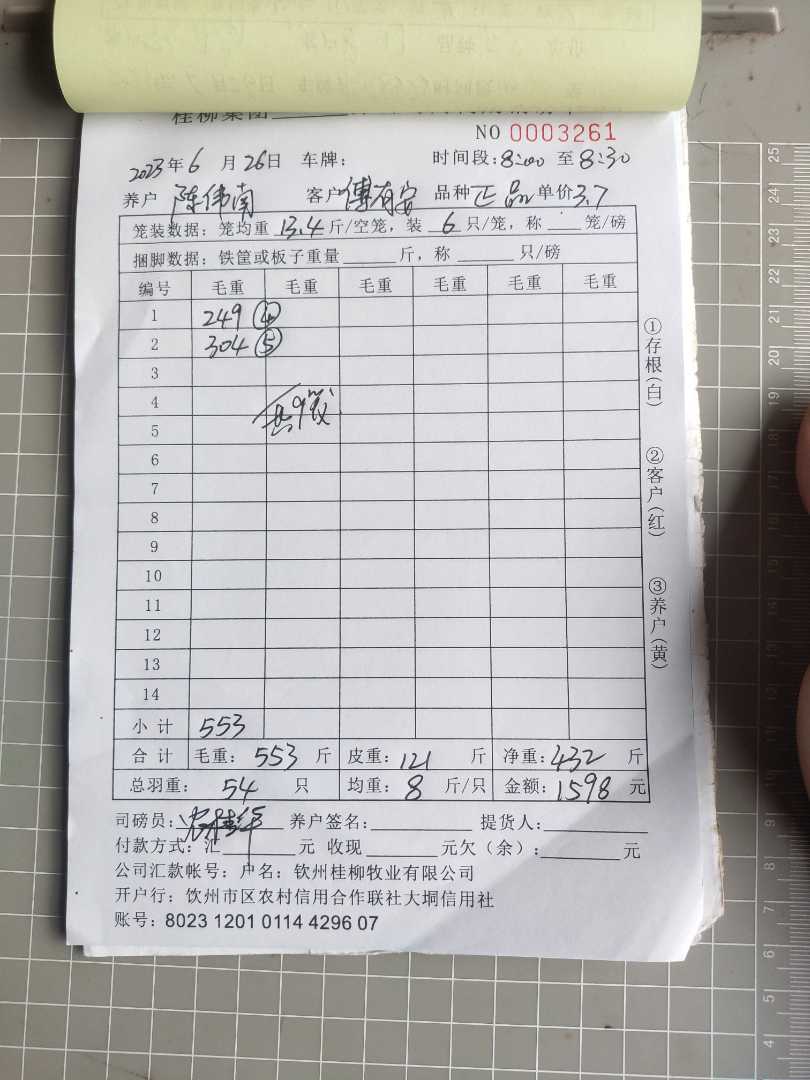 桂柳集团
NO 0003261
2023年6月26日 车牌: 时间段:8:00至8:30
养户 陈伟南 客户 傅有安 品种 正品 单价3.7
笼装数据: 笼均重 13.4 斤/空笼, 装 6 只/笼, 称 ___ 笼/磅
捆脚数据: 铁筐或板子重量 ______ 斤, 称 ______ 只/磅
编号 毛重 毛重 毛重 毛重 毛重 毛重
1 249 ④
2 304 ⑤
3
4
共9笼
5
6
7
8
9
10
11
12
13
14
小计 553
合计 毛重: 553 斤 皮重: 121 斤 净重: 432 斤
总羽重: 54 只 均重: 8 斤/只 金额: 1598 元
司磅员: 养户签名: 提货人:
付款方式: 汇 元 收现 元欠(余): 元
公司汇款帐号: 户名: 钦州桂柳牧业有限公司
开户行: 饮州市区农村信用合作联社大垌信用社
账号: 8023 1201 0114 4296 07
①存根(白)
②客户(红)
③养户(黄)